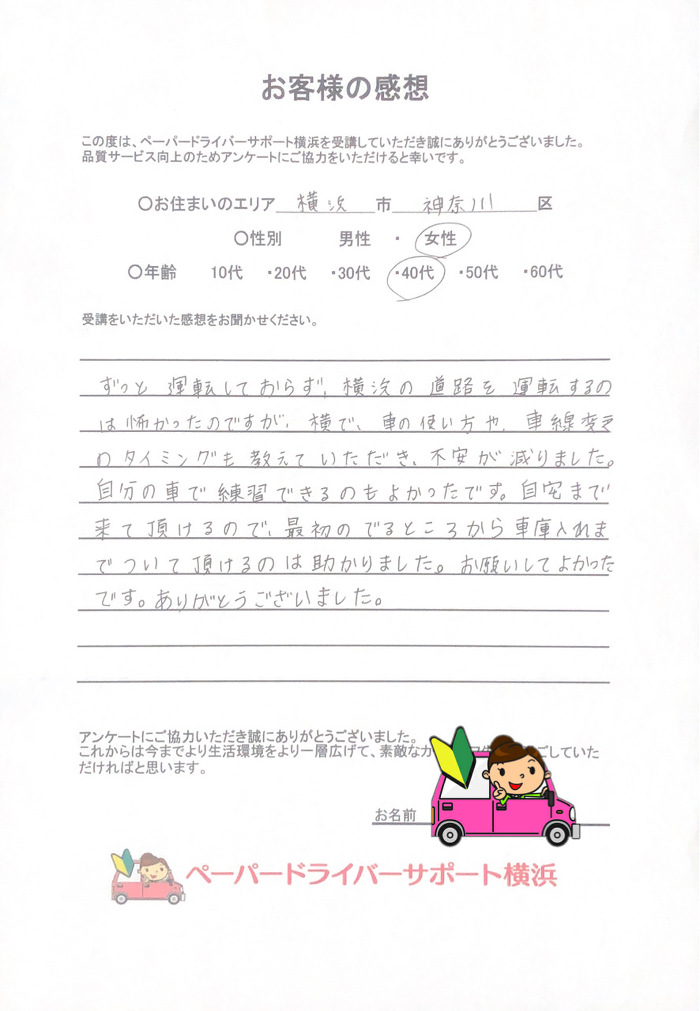 お客様の感想
この度は、ペーパードライバーサポート横浜を受講していただき誠にありがとうございました。
品質サービス向上のためアンケートにご協力をいただけると幸いです。
〇お住まいのエリア 横浜 市 神奈川 区
〇性別 男性 ・ 女性
〇年齢 10代 ・20代 ・30代 ・40代 ・50代 ・60代
受講をいただいた感想をお聞かせください。
ずっと運転しておらず、横浜の道路を運転するの
は怖かったのですが、横で、車の使い方や、車線変更
のタイミングも教えていただき、不安が減りました。
自分の車で練習できるのもよかったです。自宅まで
来て頂けるので、最初のでるところから車庫入れま
でついて頂けるのは助かりました。お願いしてよかった
です。ありがとうございました。
アンケートにご協力いただき誠にありがとうございました。
これからは今までより生活環境をより一層広げて、素敵なカ ごしていた
だければと思います。
お名前
ペーパードライバーサポート横浜